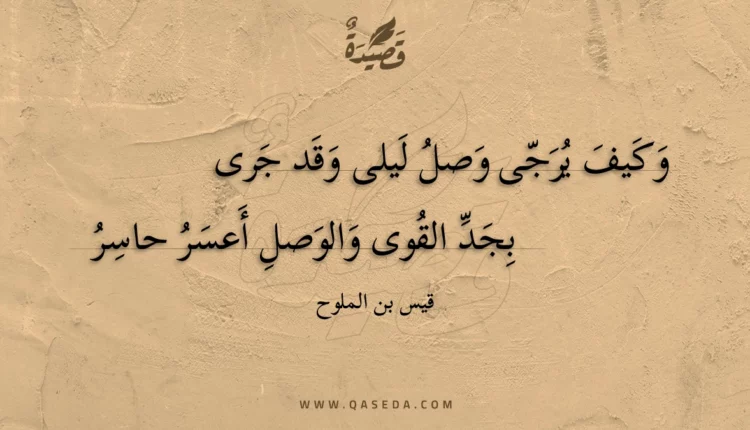 قَصِيدَةٌ
وَكَيفَ يُرَجّى وَصلُ لَيلى وَقَد جَرى
بِجَدِّ القُوى وَالوَصلِ أَعسَرُ حاسِرُ
قيس بن الملوح
WWW.QASEDA.COM